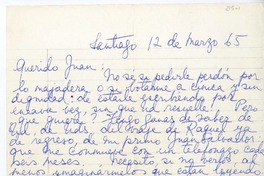 Santiago 12 de Marzo 65
Querido Juan:
No sé si pedirle perdón por
lo majadera o si votarme a cínica y sin
dignidad: de estarle escribiendo por
enésima vez, que ha resuelto. Pero
que quiere? Tengo ganas de saber de
Ud., de Uds. del viaje de Raquel ya
de regreso, de mi primo Juan Salvador:
que me comuniqué con él telefono cada
seis meses. Necesito, si no verlos, al
menos imaginarmelos que están leyendo